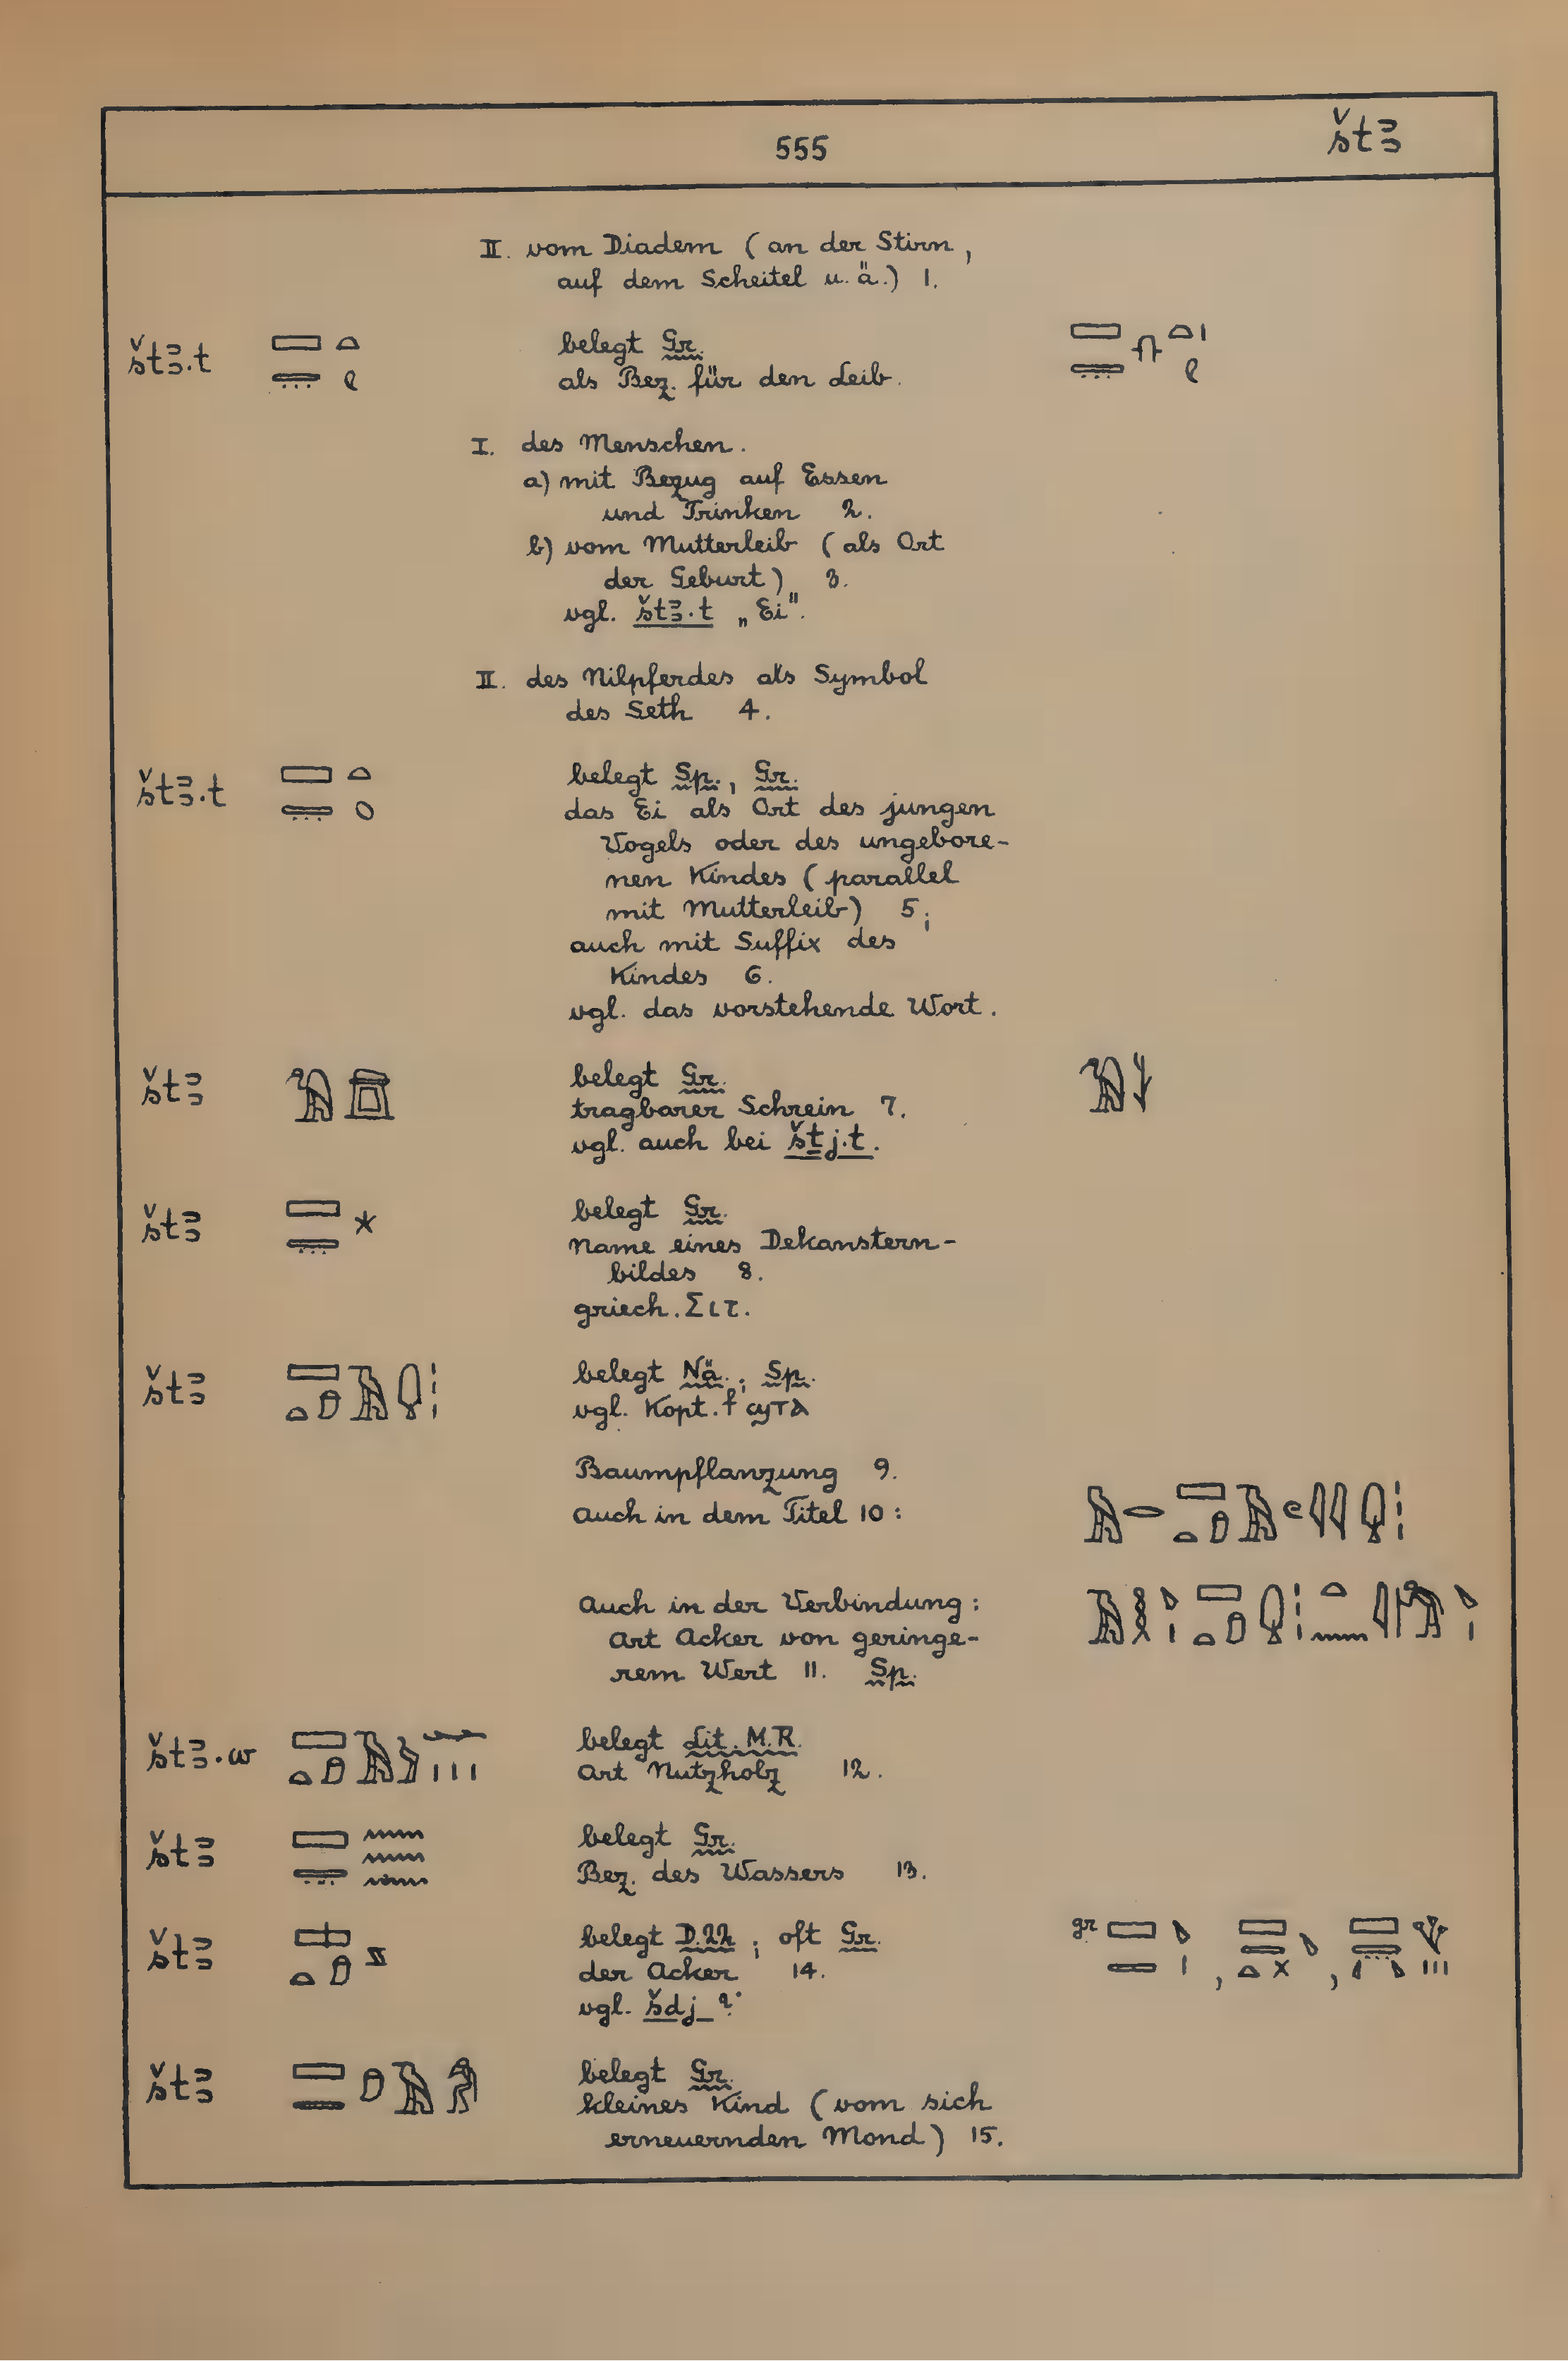 555 štꜣ
II. vom Diadem (an der Stirn,
auf dem Scheitel u. ä.) 1.
štꜣ.t belegt Gr.
als Bez. für den Leib.
I. des Menschen.
a) mit Bezug auf Essen
und Trinken 2.
b) vom Mutterleib (als Ort
der Geburt) 3.
vgl. štꜣ.t „Ei".
II. des Nilpferdes als Symbol
des Seth 4.
štꜣ.t belegt Sp., Gr.
das Ei als Ort des jungen
Vogels oder des ungebore-
nen Kindes (parallel
mit Mutterleib) 5;
auch mit Suffix des
Kindes 6.
vgl. das vorstehende Wort.
štꜣ belegt Gr.
tragbarer Schrein 7.
vgl. auch bei šṯj.t.
štꜣ belegt Gr.
Name eines Dekanstern-
bildes 8.
griech. Σιτ.
štꜣ belegt Nä.; Sp.
vgl. Kopt. f ϣⲧⲁ
Baumpflanzung 9.
Auch in dem Titel 10:
Auch in der Verbindung:
Art Acker von geringe-
rem Wert 11. Sp.
štꜣ.w belegt Lit. M.R.
Art Nutzholz 12.
štꜣ belegt Gr.
Bez. des Wassers 13.
štꜣ belegt D.22; oft Gr. gr , ,
der Acker 14.
vgl. šdj_?
štꜣ belegt Gr.
kleines Kind (vom sich
erneuernden Mond) 15.